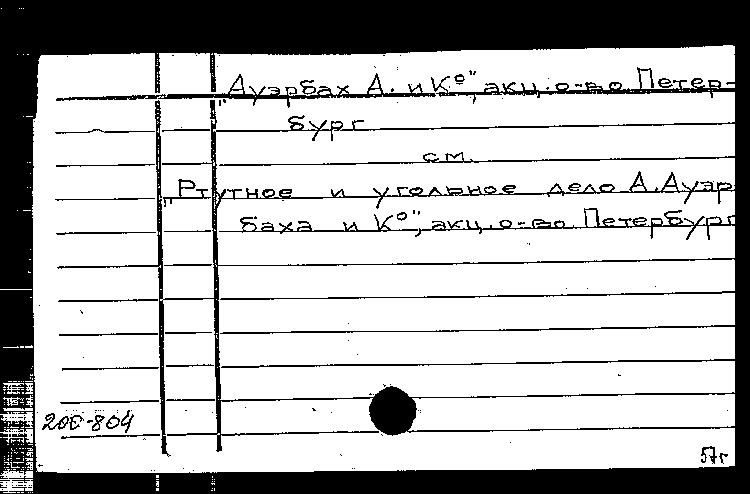 „Ауэрбах А. и К⁰", акц. о-во Петер-
бург
см.
„Ртутное и угольное дело А. Ауэр
баха и К⁰", акц. о-во Петербург
200-804
57г